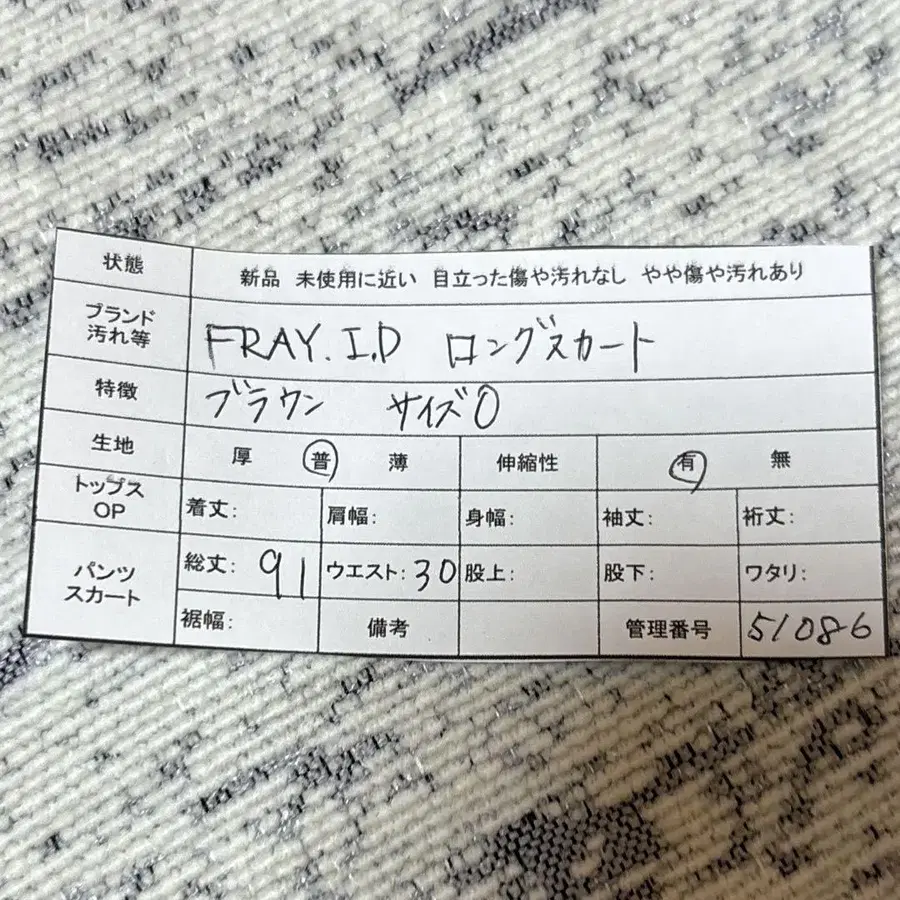 状態 新品 未使用に近い 目立った傷や汚れなし やや傷や汚れあり
ブランド
汚れ等 FRAY.I.D ロングスカート
特徴 ブラウン サイズ0
生地 厚 普 薄 伸縮性 有 無
トップス
OP 着丈: 肩幅: 身幅: 袖丈: 裄丈:
パンツ
スカート 総丈: 91 ウエスト: 30 股上: 股下: ワタリ:
裾幅: 備考 管理番号 51086